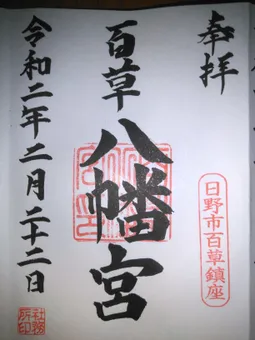 奉拝
日野市百草鎮座
百草八幡宮
令和二年二月二十二日
社務所印